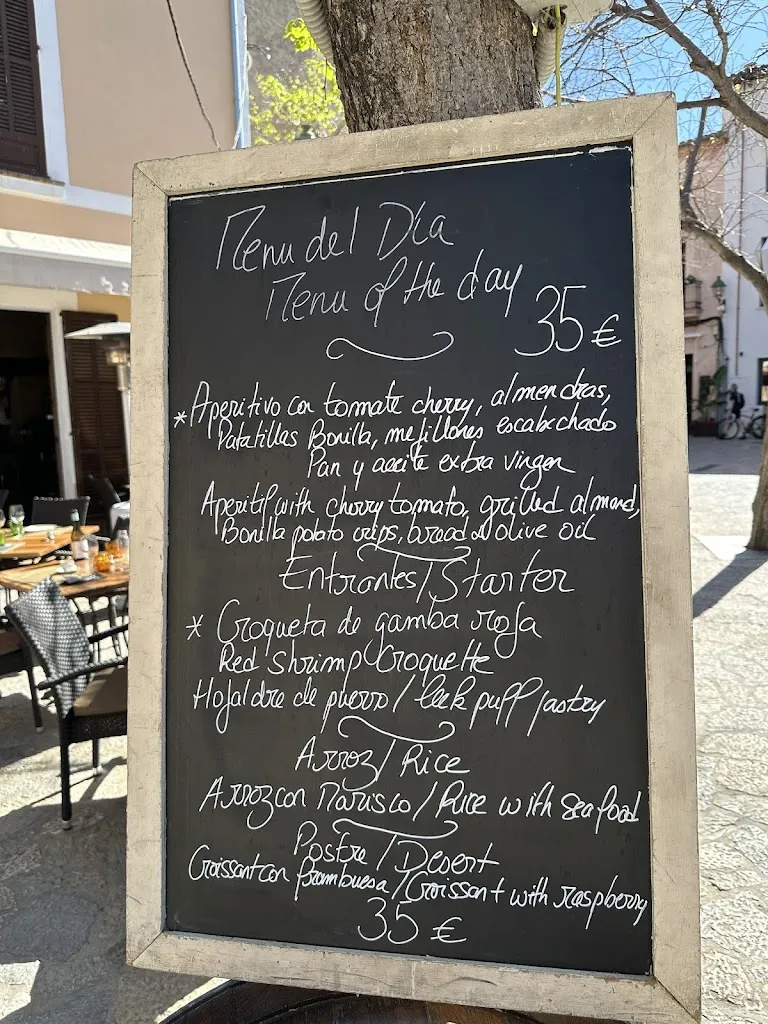 Menu del Día
Menu of the day
35 €
* Aperitivo con tomate cherry, almendras,
Patatillas Bonilla, mejillones escabechado
Pan y aceite extra virgen
Aperitif with cherry tomato, grilled almond,
Bonilla potato crips, bread & olive oil
Entrantes/Starter
* Croqueta de gamba roja
Red Shrimp Croquette
Hojaldre de puerro / leek puff pastry
Arroz / Rice
Arroz con Marisco / Rice with sea food
Postre / Desert
Croissant con frambuesa / Croissant with raspberry
35 €